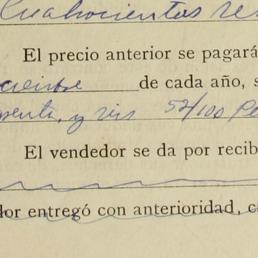 Cuatrocientos se
El precio anterior se pagará
de cada año, s
y seis 52/100 Pe
El vendedor se da por recib
dor entregó con anterioridad, c